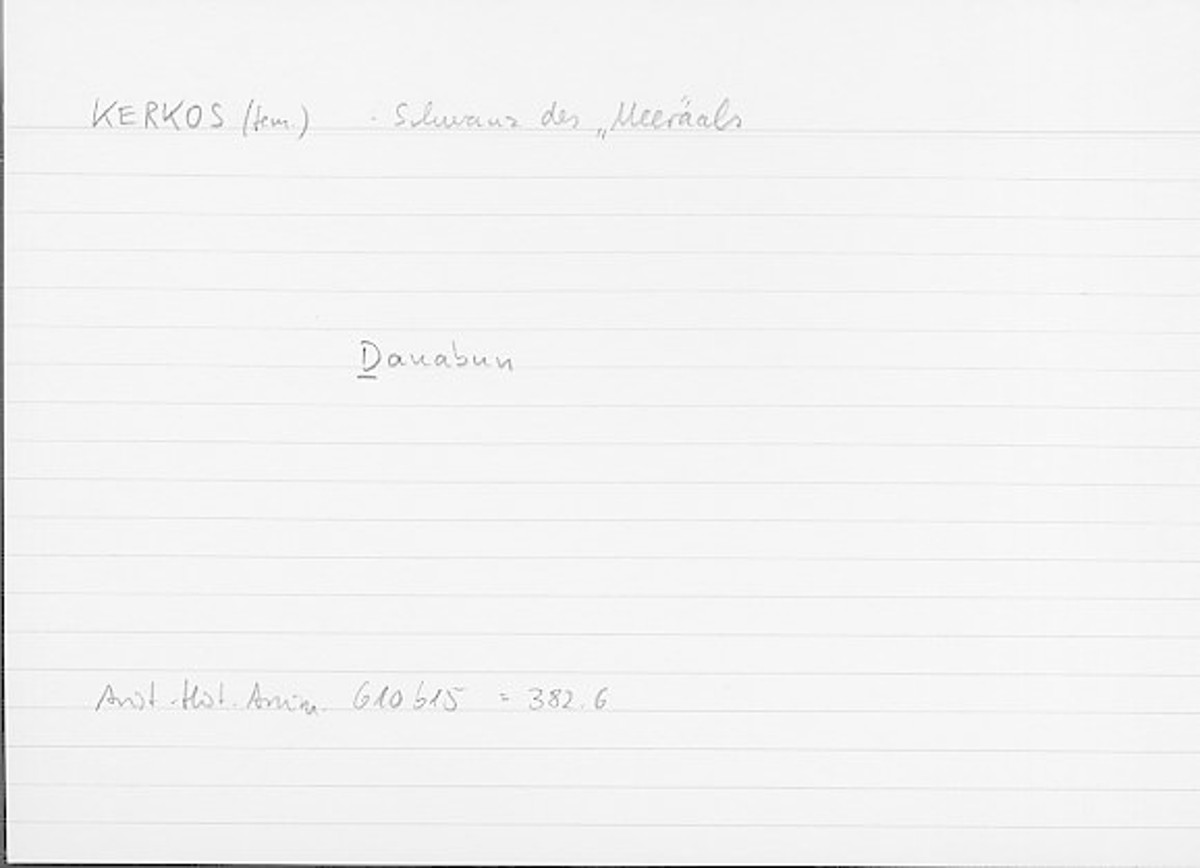 KERKOS (fem.) · Schwanz des „Meeräals
Danabun
Arist. Hist. Anim. 610b15 = 382.6